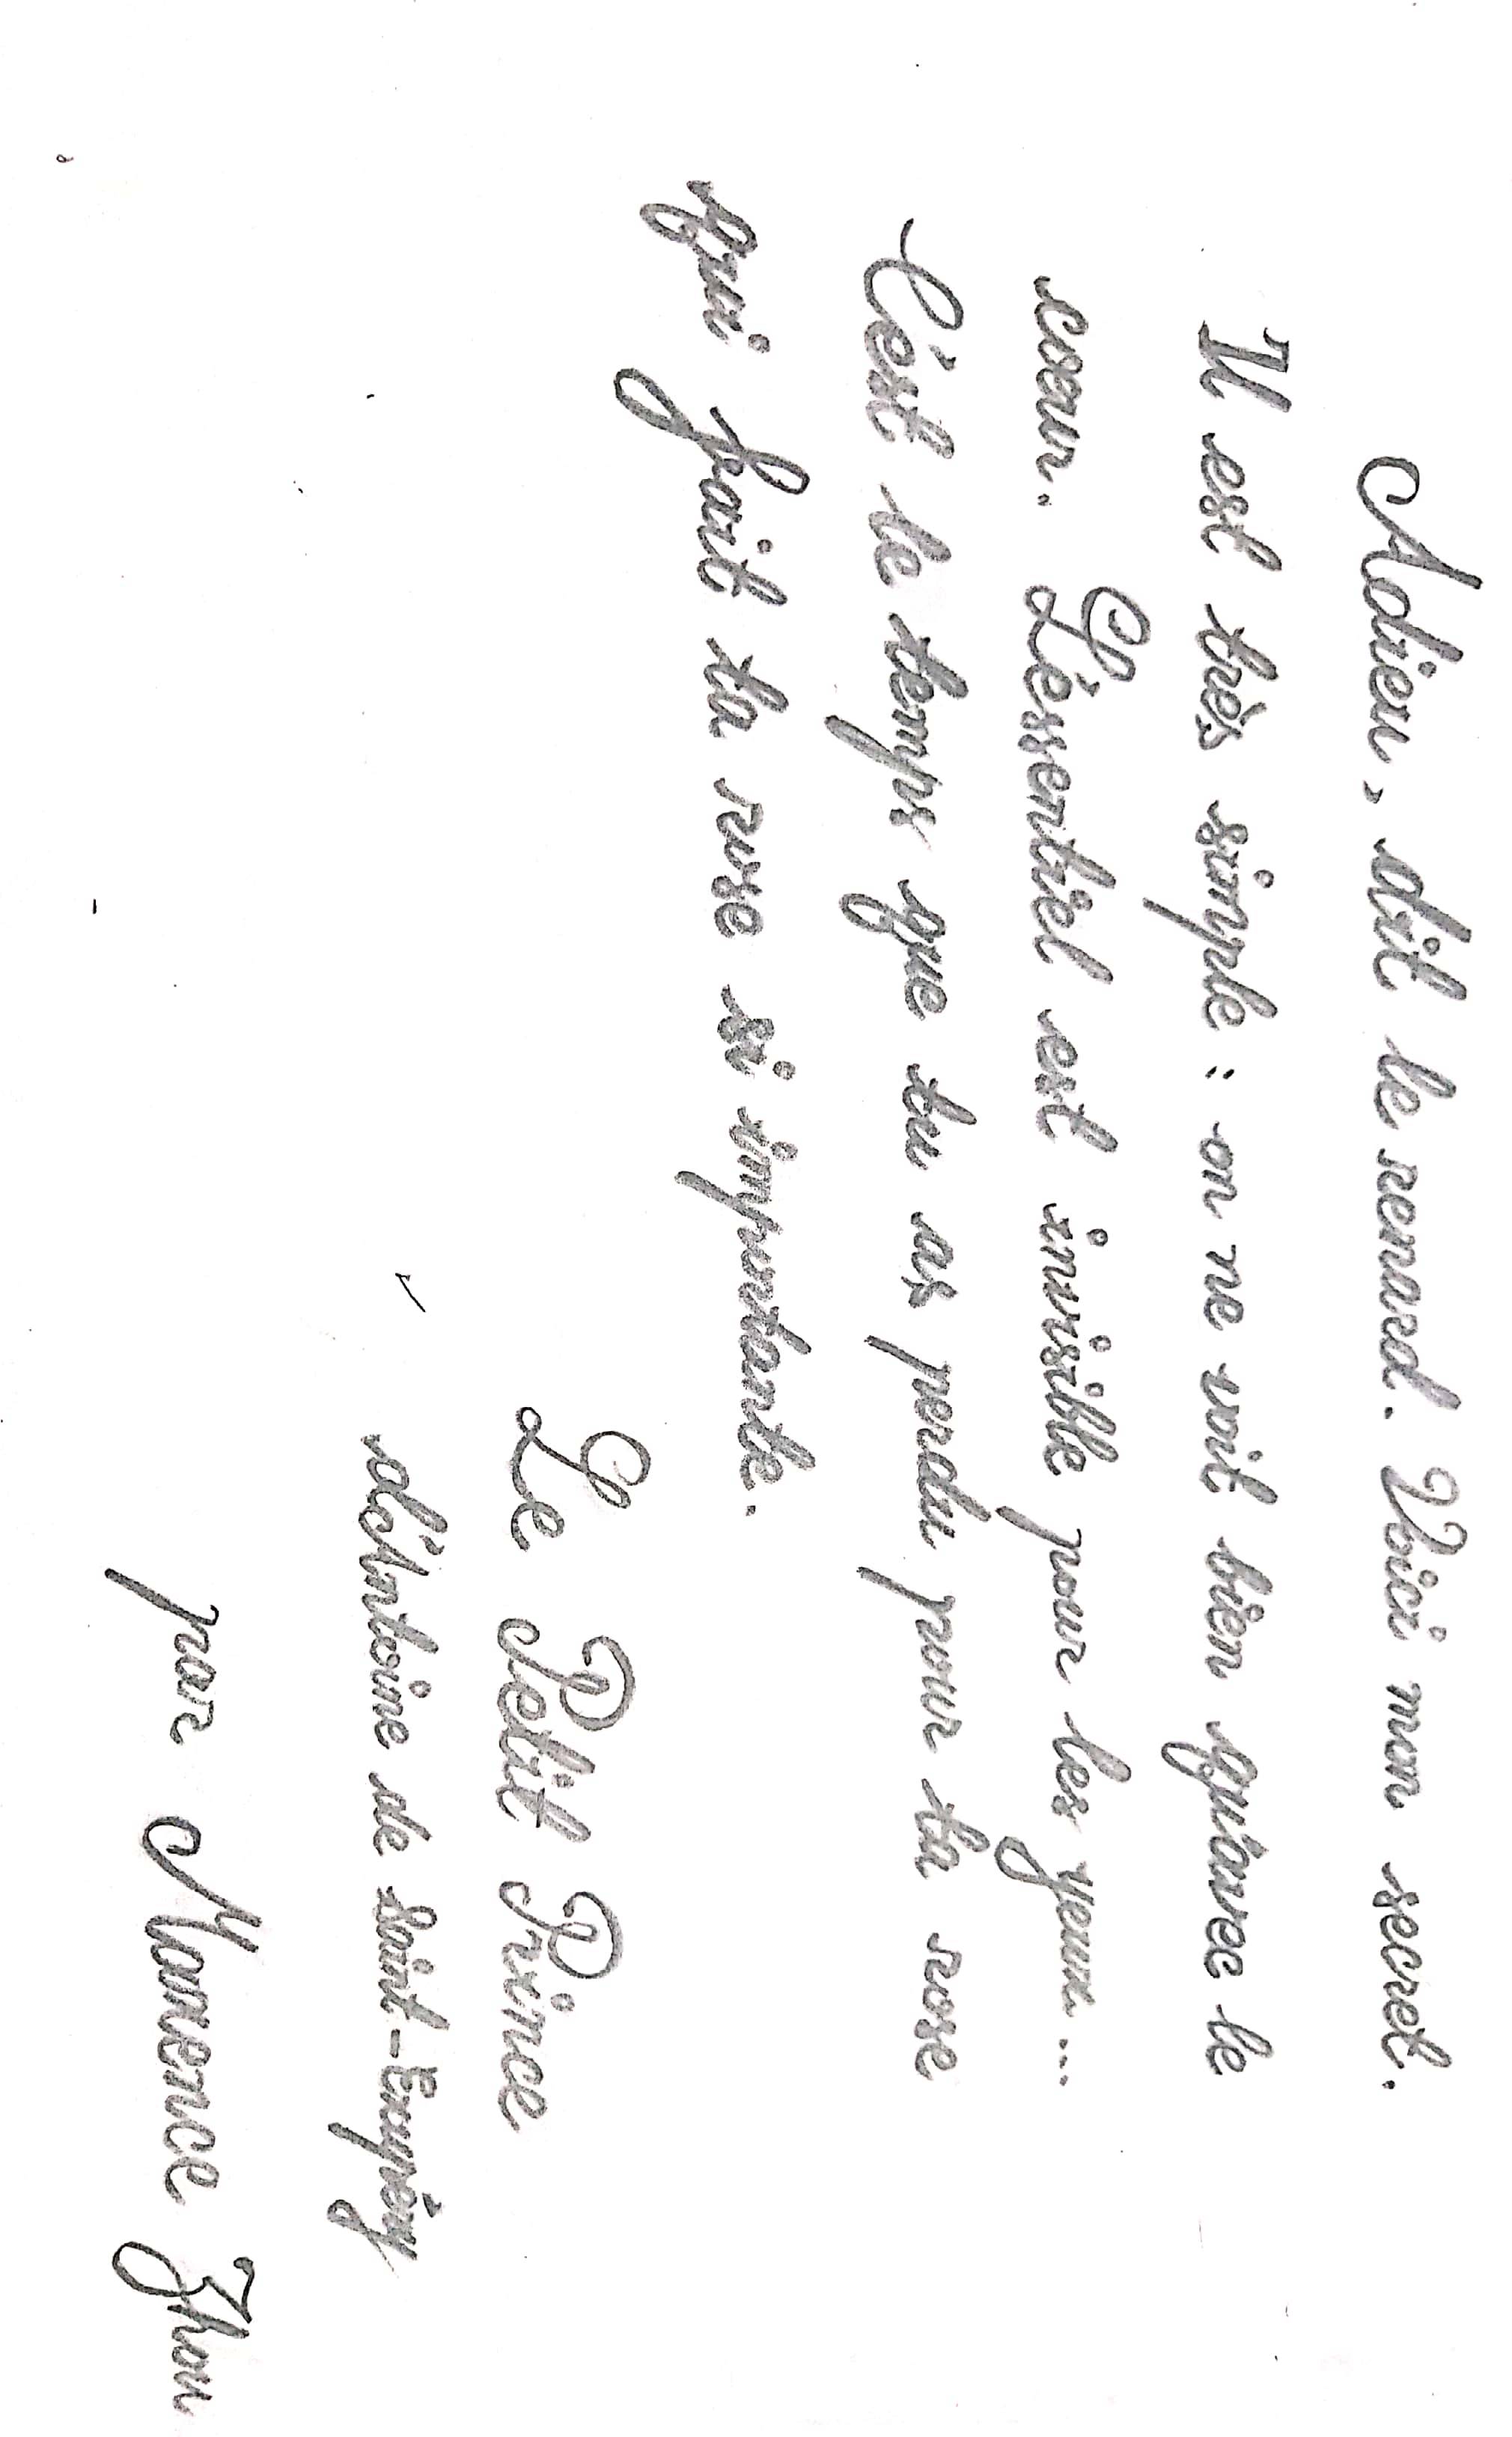 Adieu, dit le renard. Voici mon secret.
Il est très simple : on ne voit bien qu'avec le
coeur. L'essentiel est invisible pour les yeux...
C'est le temps que tu as perdu pour ta rose
qui fait ta rose si importante.
Le Petit Prince
d'Antoine de Saint-Exupéry
par Maxence Zhou